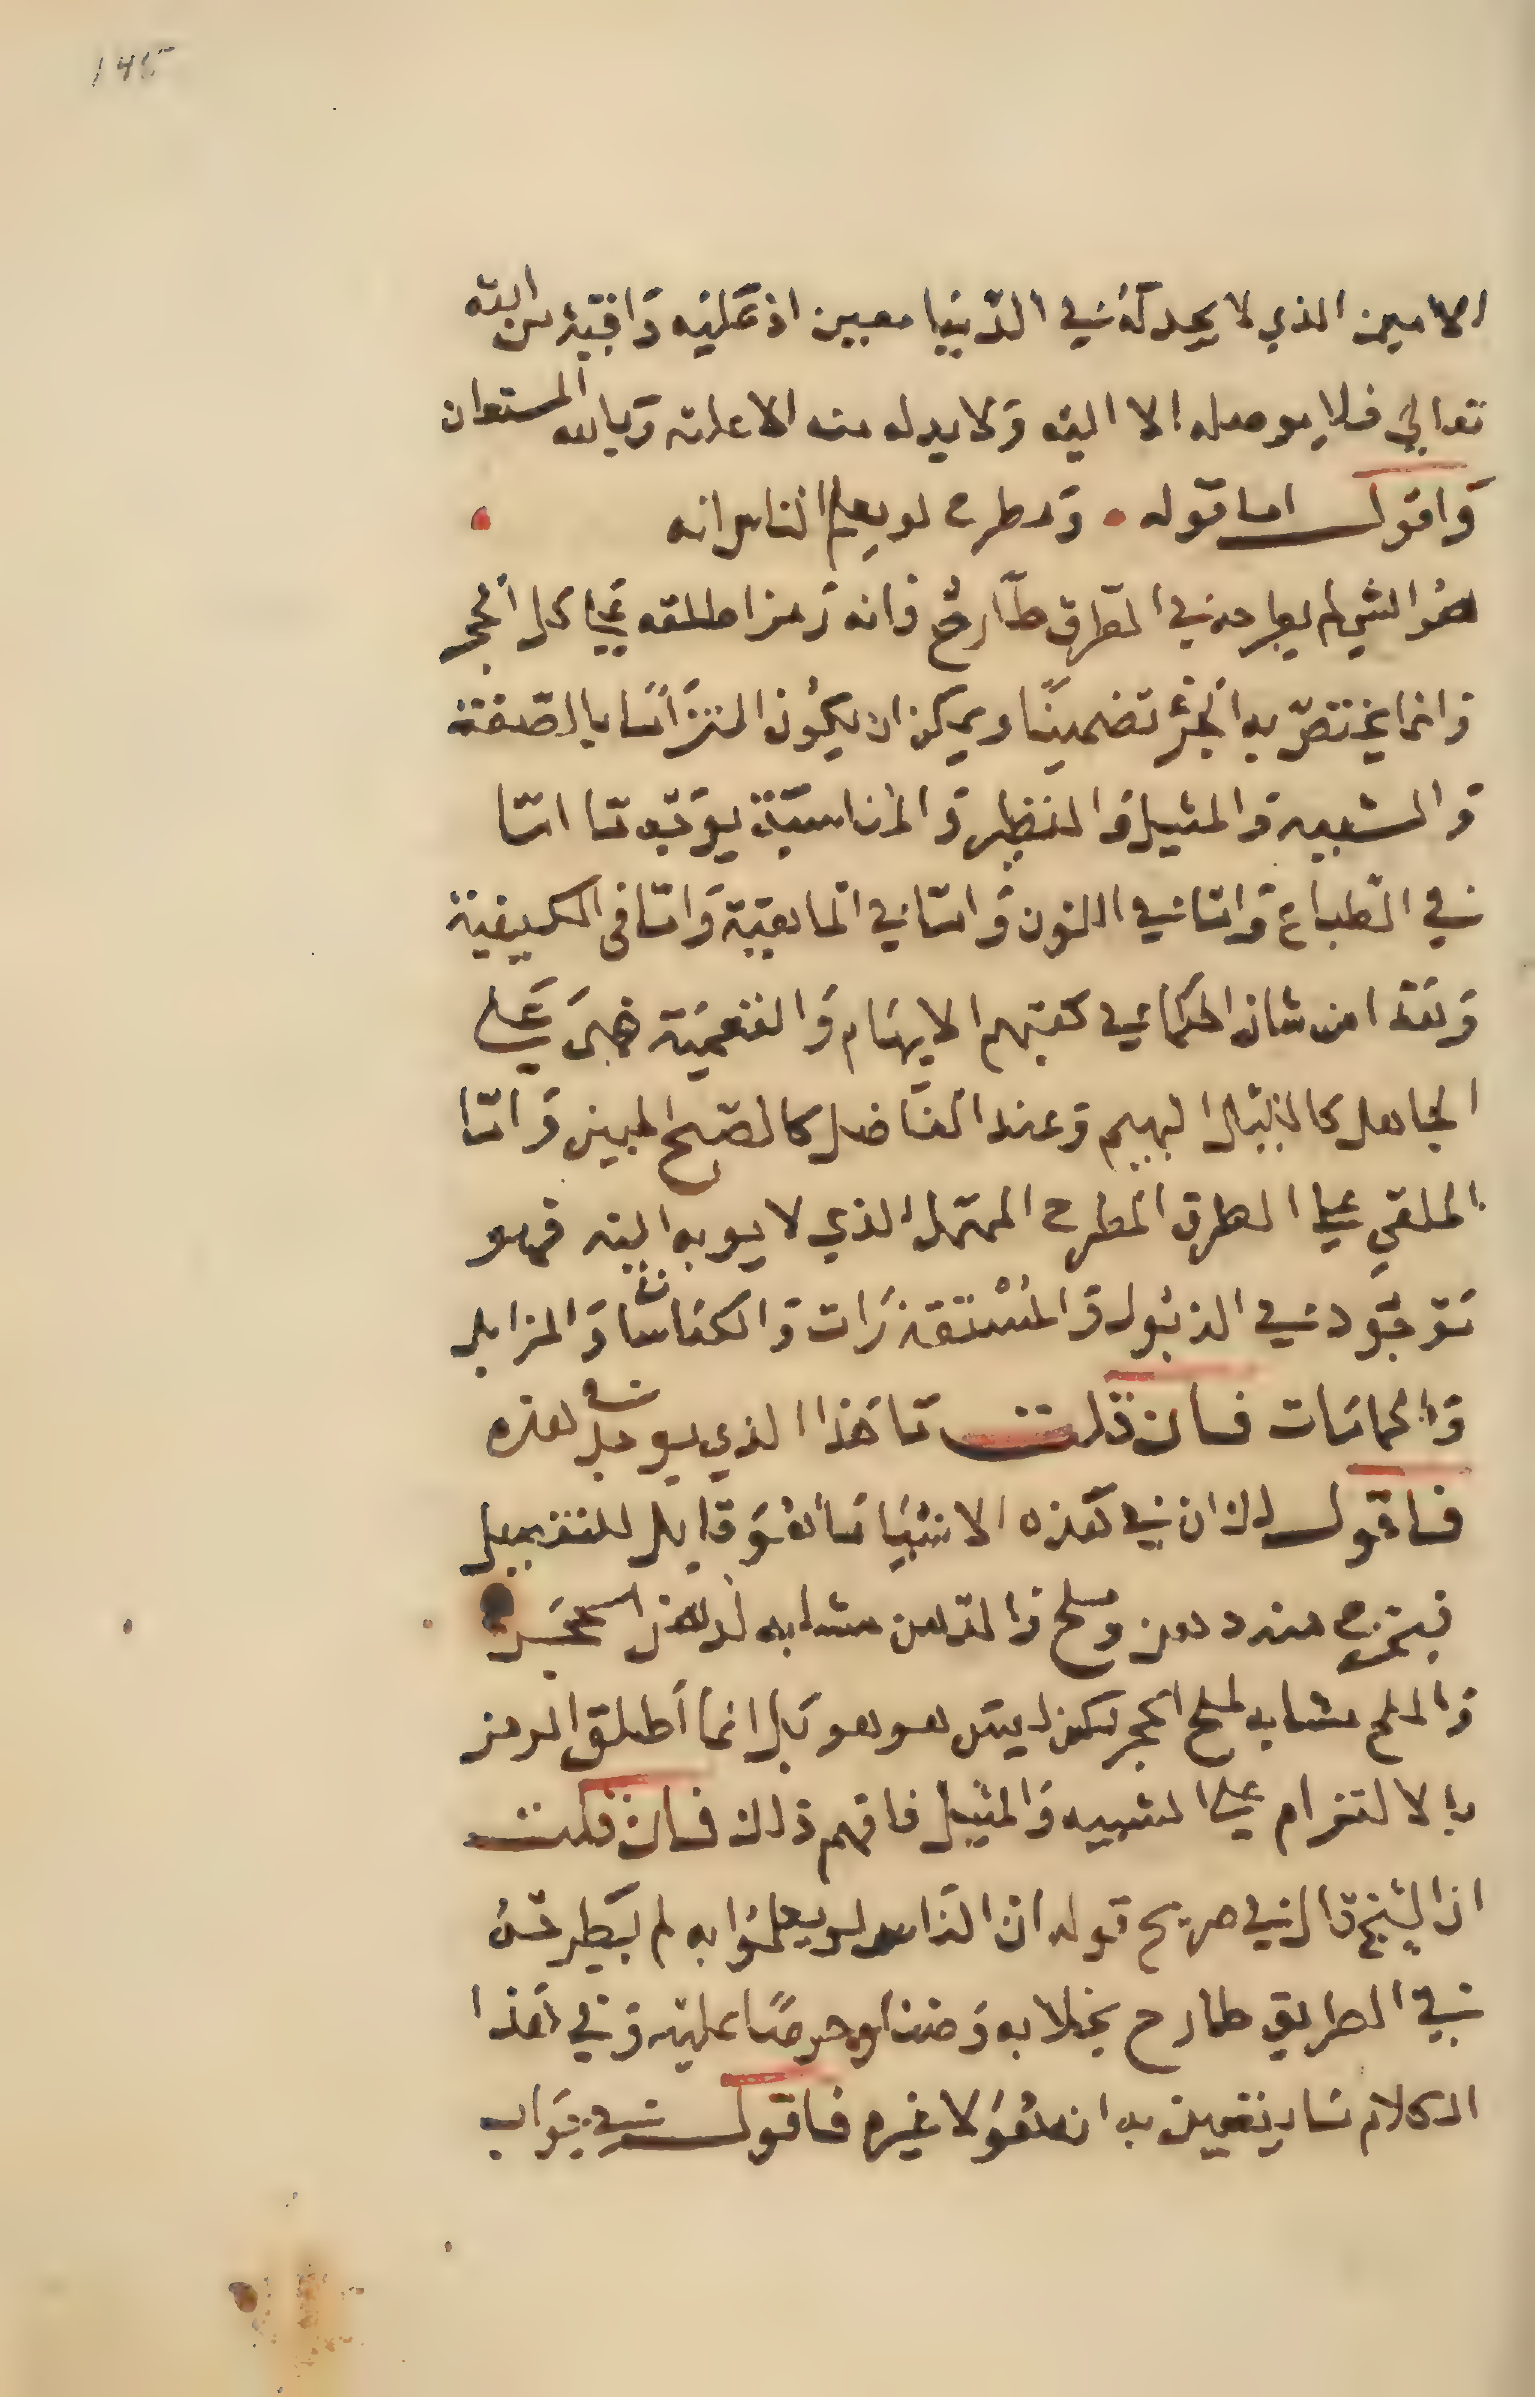 ١٤٥
الامين الذي لا يجد له في الدنيا معين اذ عليه واقية من الله
تعالي فلا يوصله الا اليه ولا يدله منه الا عليه وبالله المستعان
واقول اما قوله ومطرح لو يعلم الناس انه
هو الشي لم يطرحه في الطرق طارح فانه رمز اطلقه علي كل الحجر
وانما يختص به الجزء تضمينًا ويمكن ان يكون التزامًا بالصفة
والتشبيه والمثيل والنظير والمناسبة بوجه ما اما
في الطباع واما في اللون واما في الماهية واما في الكيفية
وهذا من شان الحكما في كتبهم الايهام والتعمية فهي علي
الجاهل كالليل البهيم وعند الفاضل كالصبح المبين واما
الملقي علي الطرق المطرح المهمل الذي لا يوبه اليه فهو
موجود في الذبول والمستقذرات والكناسات والمزابل
والحمامات فان قلت ما هذا الذي يوجد في هذه
فاقول لك ان في هذه الاشيا ما هو قابل للتفصيل
فيخرج منه دهن وملح فالدهن مشابه لدهن الحجر
والملح مشابه لملح الحجر لكن ليس هو هو بل انما اطلق الرمز
بالالتزام علي التشبيه والمثيل فافهم ذلك فان قلت
ان الشيخ قال في صريح قوله ان الناس لو يعلموا به لم يطرحه
في الطريق طارح بخلا به وضنا وحرصًا عليه وفي هذا
الكلام ما يتعين به انه هو لا غيره فاقول في جواب